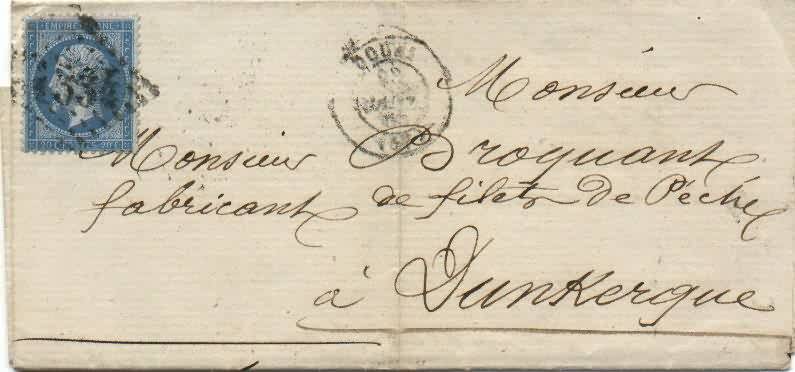 EMPIRE FRANC
20 CENTMES 20 C
DOUAI
Monsieur
Monsieur Droquant
fabricant de filets de Pêche
à Dunkerque